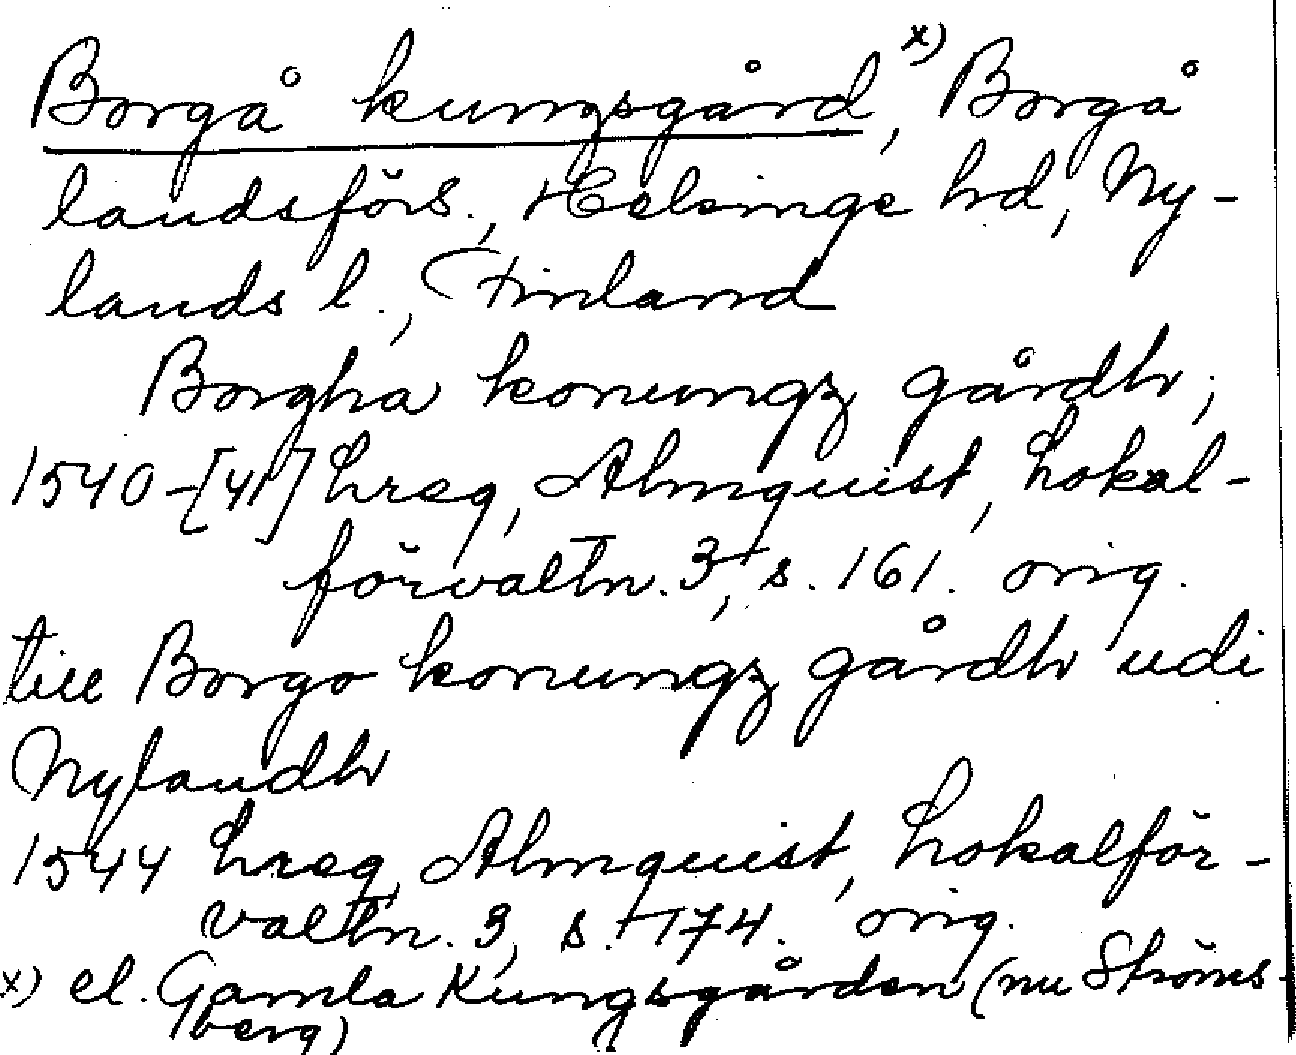 Borgå kungsgård, x) Borgå
landsförs., Helsinge hd, Ny-
lands l., Finland
Borgha konungz gårdh,
1540-[41] hreg, Almquist, Lokal-
förvaltn. 3, s. 161. orig.
till Borgo konungz gårdh udi
Nylandh
1544 hreg, Almquist, Lokalför-
valtn. 3, s. 174. orig.
x) el. Gamla Kungsgården (nu Ströms-
berg)